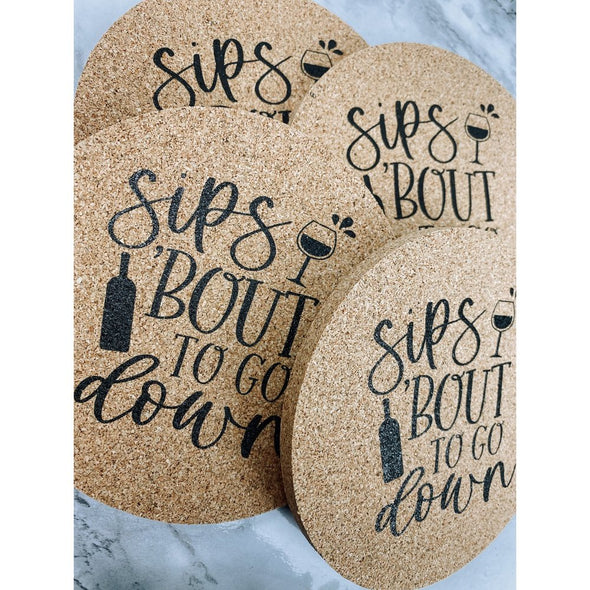 sips
sips
'BOUT
sips
'BOUT
TO GO
down
sips
'BOUT
TO GO
down